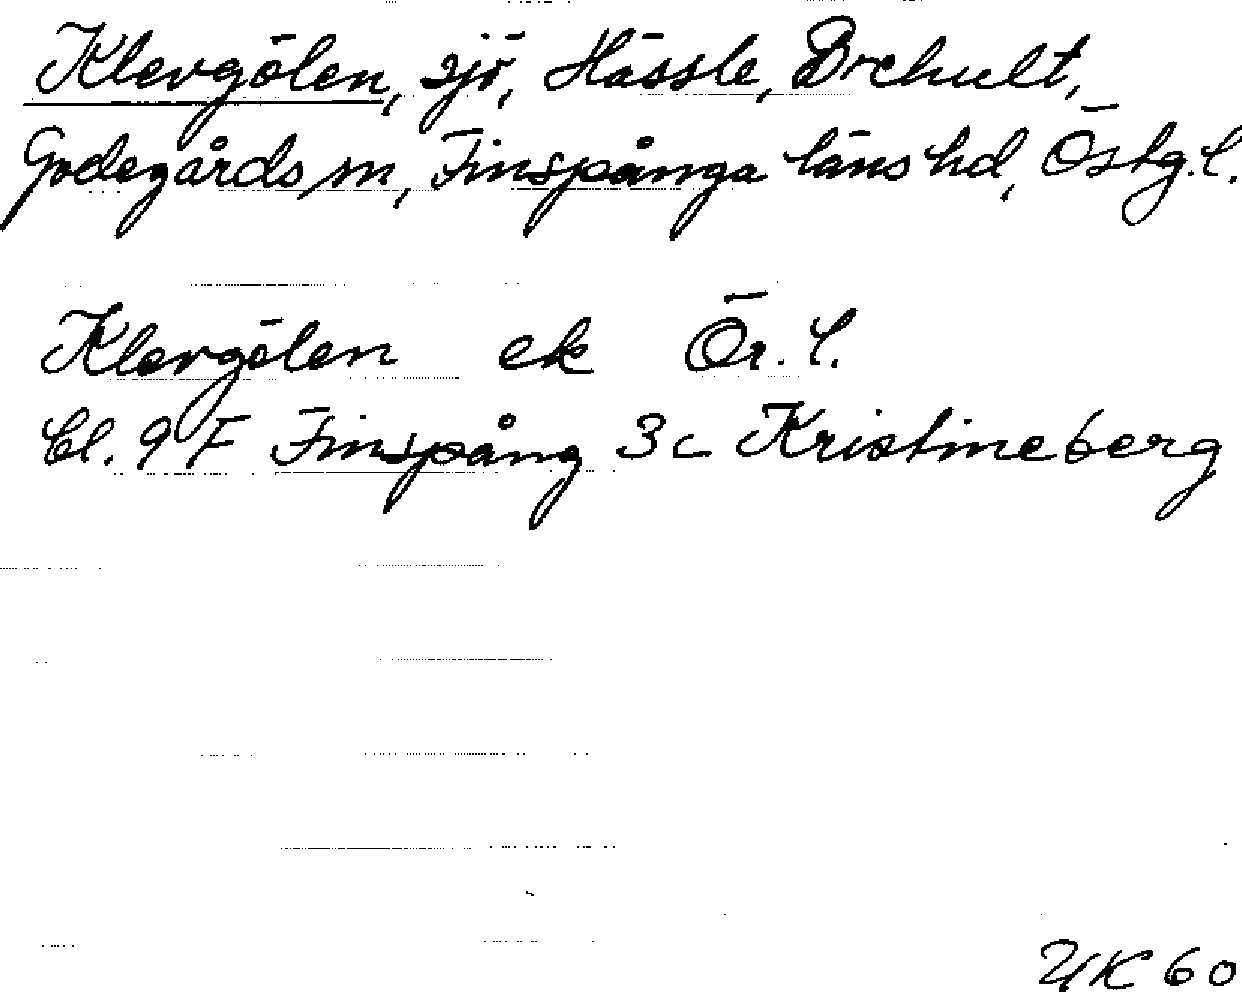 Klevgölen, sjö, Hässle, Brchult,
Godegårds sn, Finspånga läns hd, Östg.l.
Klevgölen ek Ör.l.
Bl. 9F Finspång 3c Kristineberg
UK 60